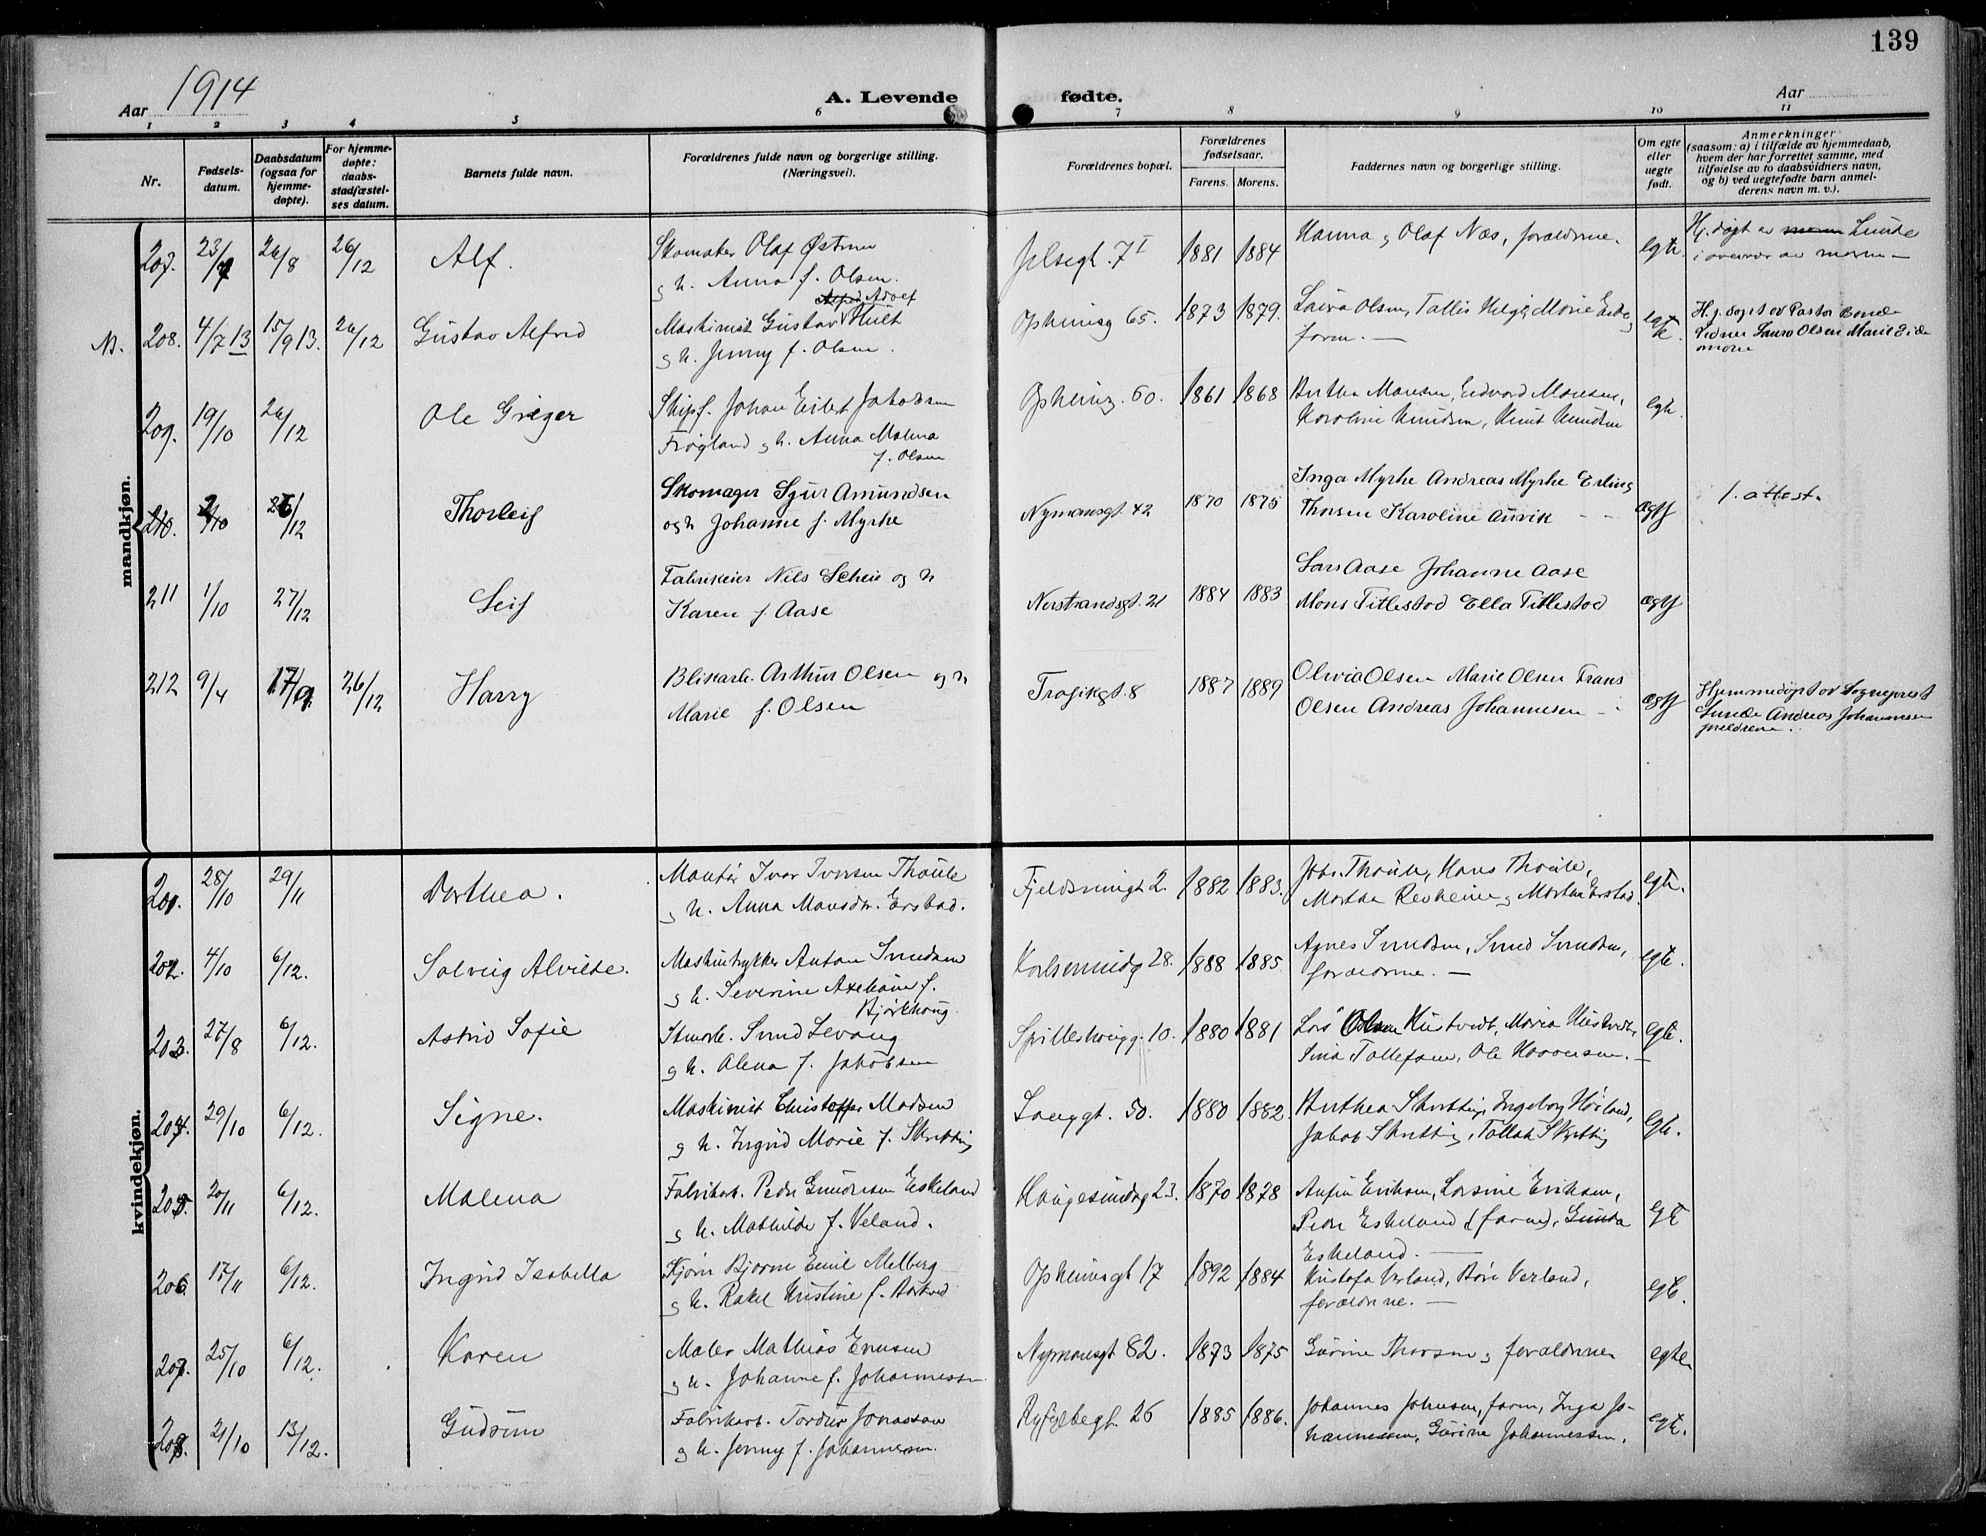 139
Aar 1914
A. Levende fødte.
Aar
1 2 3 4 5 6 7 8 9 10 11
Nr.
Fødsels-
datum.
Daabsdatum
(ogsaa for
hjemme-
døpte).
For hjemme-
døpte:
daabs-
stadfæstel-
ses datum.
Barnets fulde navn.
Forældrenes fulde navn og borgerlige stilling.
(Næringsvei).
Forældrenes bopæl.
Forældrenes
fødselsaar.
Farens. Morens.
Faddernes navn og borgerlige stilling.
Om egte
eller
uegte
født.
Anmerkninger
(saasom: a) i tilfælde av hjemmedaab,
hvem der har forrettet samme, med
tilføielse av to daabsvidners navn,
og b) ved uegtefødte barn anmel-
derens navn m. v.).
mandkjøn.
207. 23/7 26/8 26/12 Alf.
Skomaker Olaf
& h. Anna f. Olsen.
Jelsegt. 7 I 1881 1884
Hanna & Olaf Næs, forældrene.
egte.
Hj. døpt av Lunde
208. 4/7 13 15/9 13. 26/12 Gustav Alfred
Adolf
Maskinist Gustav Hult
& h. Jenny f. Olsen.
Opheimsg 65. 1873 1879.
Laura Olsen,
farm. —
Hj. døpt av Pastor
Laura Olsen Marie Eide
209. 19/10 26/12 Ole Greger
Skipsf. Johan Eilert Jakobsen
Frøgland & h. Anna Malena
f. Olsen
Opheimg. 60. 1861 1868
Berthe Monsen, Edvard Monsen,
Karoline Knudsen, Knut Knudsen
egte.
210. 2/10 26/12 Thorleif
Skomager Sjur Amundsen
og h Johanne f. Myrhe
Nymansgt. 42 1870 1875
Inga Myrhe Andreas Myrhe Erling
Thorsen Karoline Auvik
ægte
f. attest.
211 1/10 27/12 Leif
Fabrikeier Nils Scheie og h
Karen f Aase
Nerstrandsgt. 21 1884 1883
Lars Aase Johanne Aase
Mons Titlestad Ella Titlestad
ægte
212 9/4 17/9 26/12 Harry
Blikarb. Arthur Olsen og h
Marie f. Olsen
Trafikgt. 8 1887 1889
Olivia Olsen Marie Olsen Frans
Olsen Andreas Johannesen
ægte
Hjemmedøpt av Sogneprest
Lunde Andreas Johannesen
kvindekjøn.
201. 28/10 29/11 Dorthea.
Montør Ivar Iversen Thoule
& h. Anna Monsdtr. Erstad.
Fjeldsmingt 2. 1882 1883.
Thoule, Hans Thoule,
Martha Revheim & Martha Erstad.
egte.
202. 4/10 6/12. Solveig Alvilde.
Maskintrykker Anton Svendsen
& h. Severine Axeliane f.
Bjørkhaug
Karlsemindeg 28. 1888 1885.
Agnes Svendsen, Svend Svendsen,
forældrene. —
egte.
203. 27/8 6/12. Astrid Sofie
Svend Levang
& h. Olena f. Jakobsen
Spillerhougg. 10. 1880 1881
Lars Olsen Kustvedt, Maria Kustvedt,
Sina Tollefsen, Ole Haavorsen. —
egte.
204. 29/10 6/12. Signe.
Maskinist Christoffer Madsen
& h. Ingrid Marie f. Skretting
Langgt. 50. 1880 1882.
Berthea Skretting, Ingeborg Høiland,
Jakob Skretting, Tollak Skretting
egte.
205. 20/11 6/12. Malena
Fabrikarb. Peder Gundersen Eskeland
& h. Mathilde f. Veland.
Haugesundsg 23. 1870 1878
Anfin Eriksen, Larsine Eriksen,
Peder Eskeland (farm), Gunda
Eskeland. —
egte
206 15/11 6/12. Ingrid Isabella
Bjarne Emil Melberg
& h. Rakel Kristine f.
Opheimsgt 17 1892 1884
Kristofa Verland, Børe Verland,
forældrene. —
egte.
207. 25/10 6/12. Karen
Maler Mathias Enersen
& h. Johanne f. Johannessen
Nymansgt 82. 1873 1875
Gurine Thorsen & forældrene
egte
208. 21/10 13/12. Gudrun
Fabrikarb. Tordur Jonassen
& h. Jenny f. Johannessen.
Ryfylkegt. 26 1885 1886.
Johannes Johnsen, farm, Inga Jo-
hannessen, Gurine Johannessen.
egte.